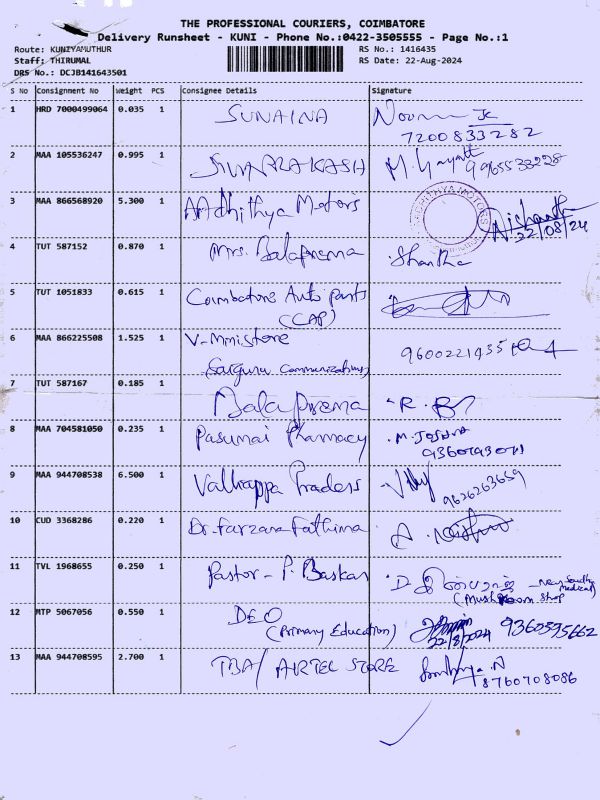 THE PROFESSIONAL COURIERS, COIMBATORE
Delivery Runsheet - KUNI - Phone No.:0422-3505555 - Page No.:1
Route: KUNIYAMUTHUR
RS No.: 1416435
Staff: THIRUMAL
RS Date: 22-Aug-2024
DRS No.: DCJB141643501
S No Consignment No Weight PCS Consignee Details Signature
1 HRD 7000499064 0.035 1 SUNAINA
7200833282
2 MAA 105536247 0.995 1 M. Gayatt 9965533228
3 MAA 866568920 5.300 1 AAdhithya Motors Nishanth
22/08/24
4 TUT 587152 0.870 1 Mrs. Balaprema Shantha
5 TUT 1051833 0.615 1 Coimbatore Auto parts
(CAP)
6 MAA 866225508 1.525 1 V-Mmistore 9600221435
(Sarguru Communications)
7 TUT 587167 0.185 1 Balaprema R. B
8 MAA 704581050 0.235 1 Pasumai Pharmacy M. Joshva
9 MAA 944708538 6.500 1 Valliappa Traders
9626263659
10 CUD 3368286 0.220 1 Dr. Farzana Fathima
11 TVL 1968655 0.250 1 Pastor - P. Baskar D.
(Mushroom Shop
12 MTP 5067056 0.550 1 DEO 9360595662
(Primary Education) 22/8/2024
13 MAA 944708595 2.700 1 TBA/ AIRTEL STORE
8760708086